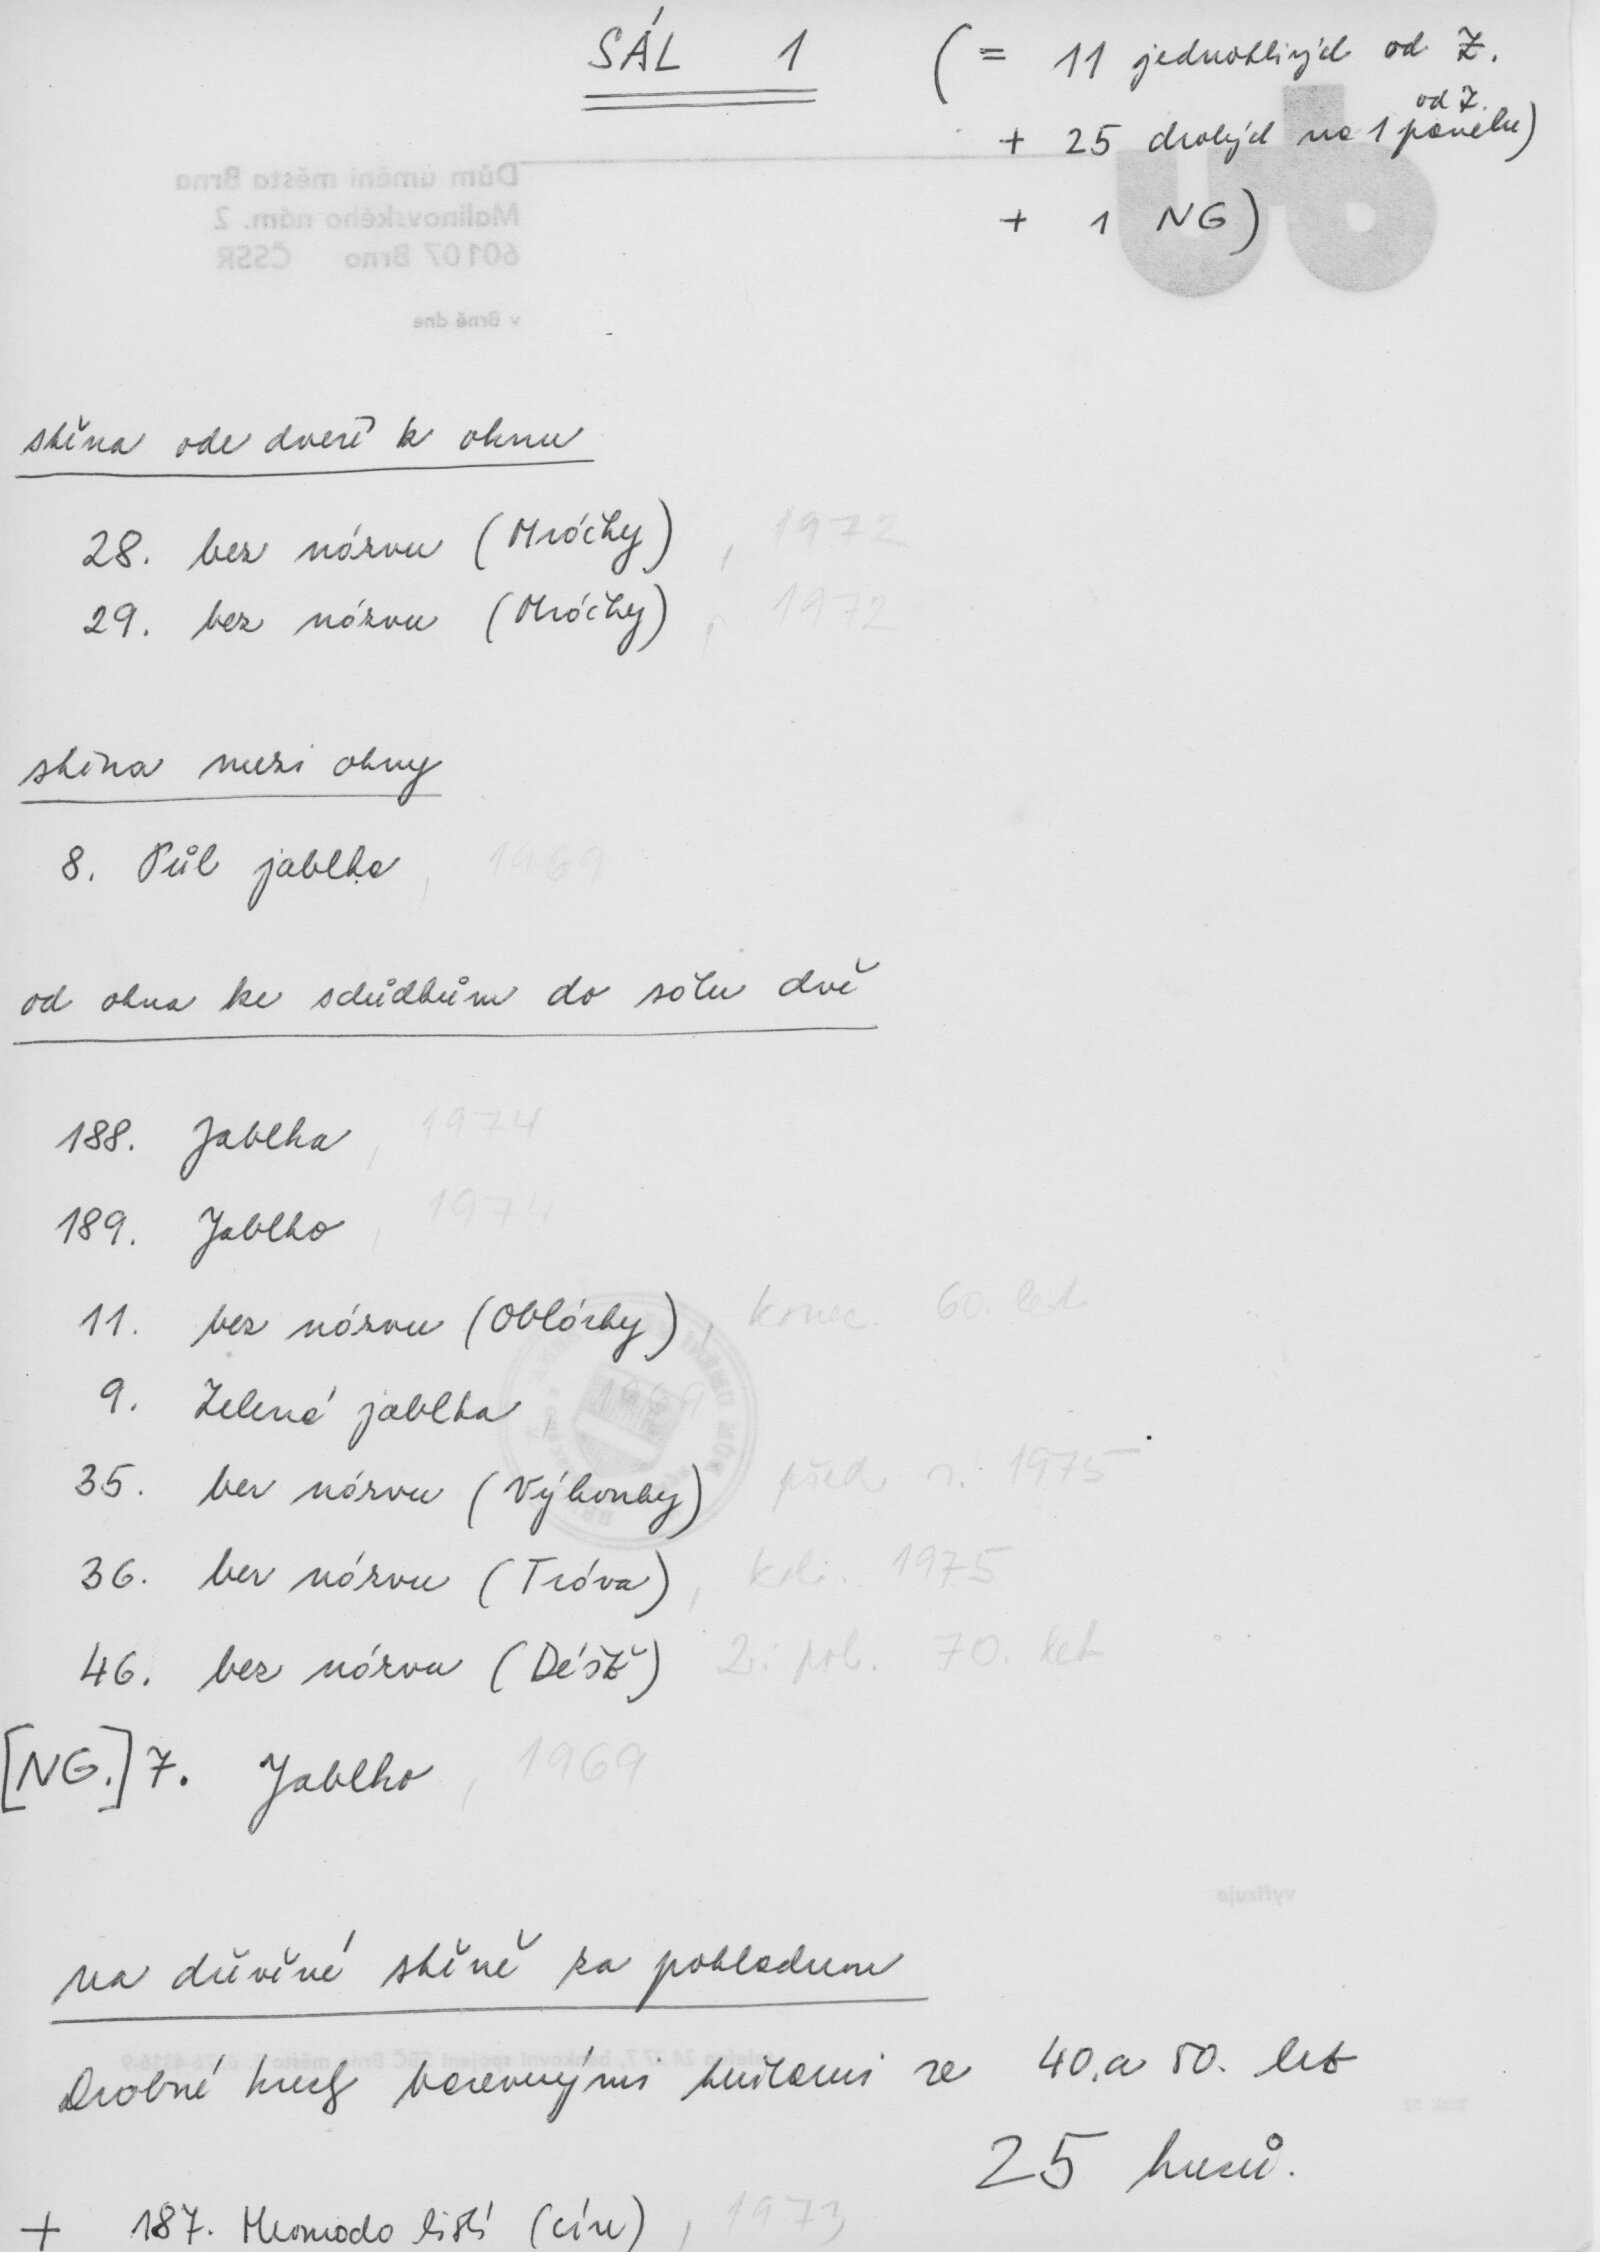 SÁL 1 (= 11 jednotlivých od Z.
od Z.
+ 25 drobných na 1 panelu)
+ 1 NG)
Dům umění města Brna
Malinovského nám. 2
60107 Brno ČSSR
v Brně dne
stěna ode dveří k oknu
28. bez názvu (Mráčky), 1972
29. bez názvu (Mráčky), 1972
stěna mezi okny
8. Půl jablka, 1969
od okna ke schůdkům do sálu dvě
188. Jablka, 1974
189. Jablko, 1974
11. bez názvu (Oblázky), konec 60. let
9. Zelená jablka, 1969
35. bez názvu (Výhonky) před r. 1975
36. bez názvu (Tráva), kol. 1975
46. bez názvu (Déšť) 2. pol. 70. let
[NG.] 7. Jablko, 1969
vyřizuje
na dřevěné stěně za pokladnou
Drobné kresby barevnými křídami ze 40. a 50. let
25 kusů.
+ 187. Hromada listí (cín), 1973